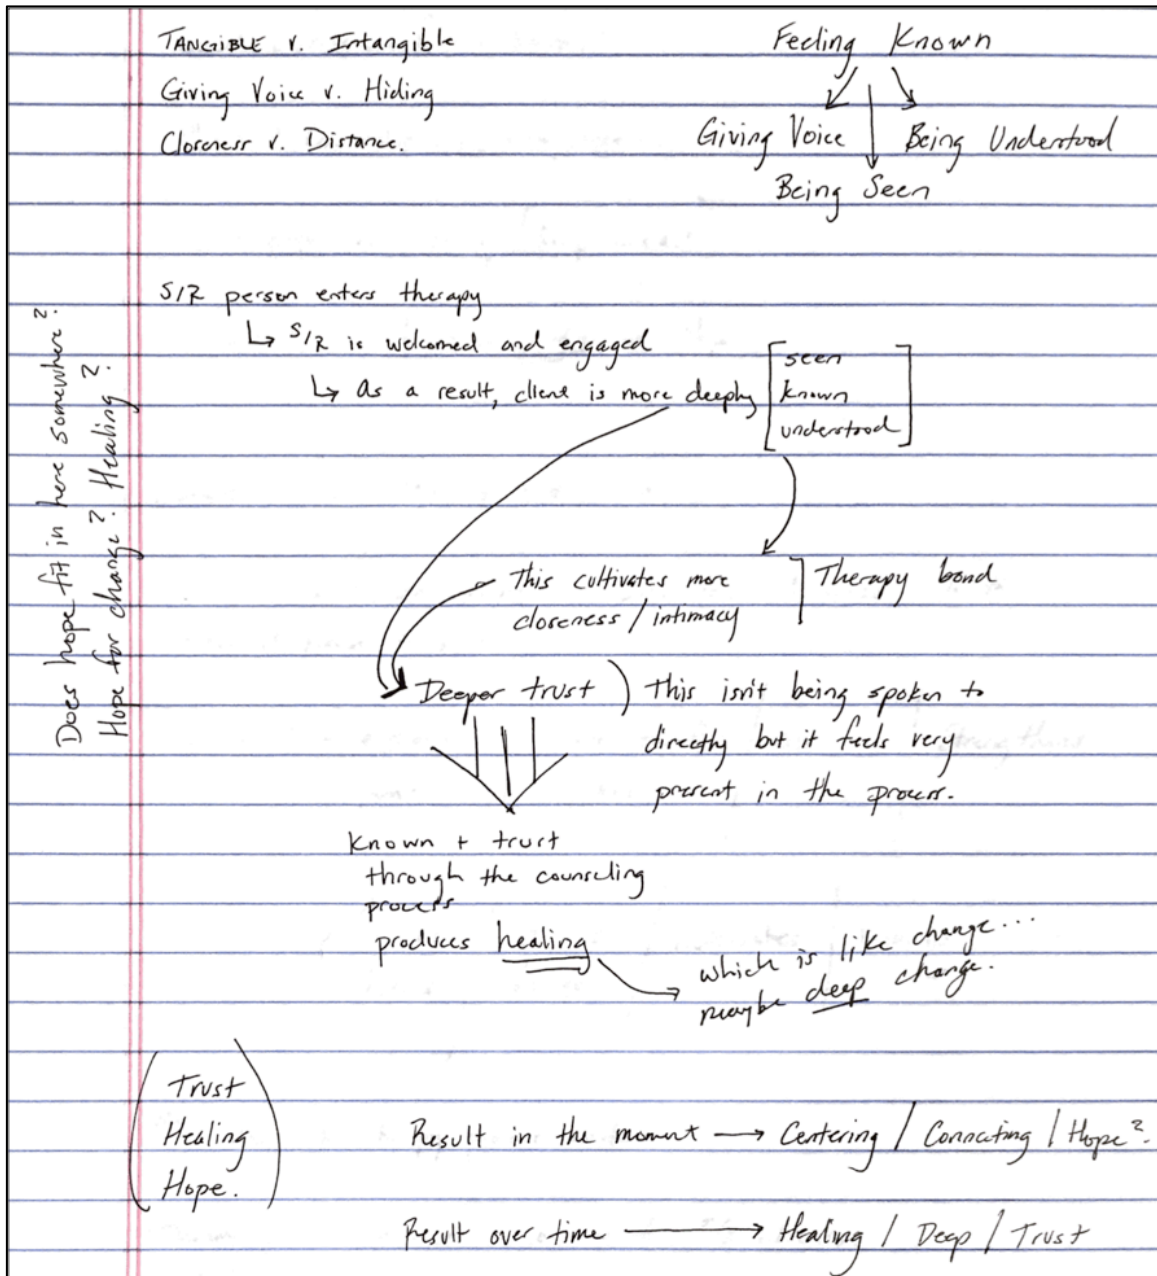 TANGIBLE v. Intangible
Giving Voice v. Hiding
Closeness v. Distance.
Feeling Known
Giving Voice
Being Understood
Being Seen
S/R person enters therapy
S/R is welcomed and engaged
As a result, client is more deeply
seen
known
understood
This cultivates more
closeness / intimacy
Therapy bond
Deeper trust
This isn't being spoken to
directly but it feels very
present in the process.
Known + trust
through the counseling
process
produces healing
which is like change...
maybe deep change.
Does hope fit in here somewhere?
Hope for change? Healing?
Trust
Healing
Hope.
Result in the moment → Centering / Connecting / Hope?
Result over time → Healing / Deep / Trust